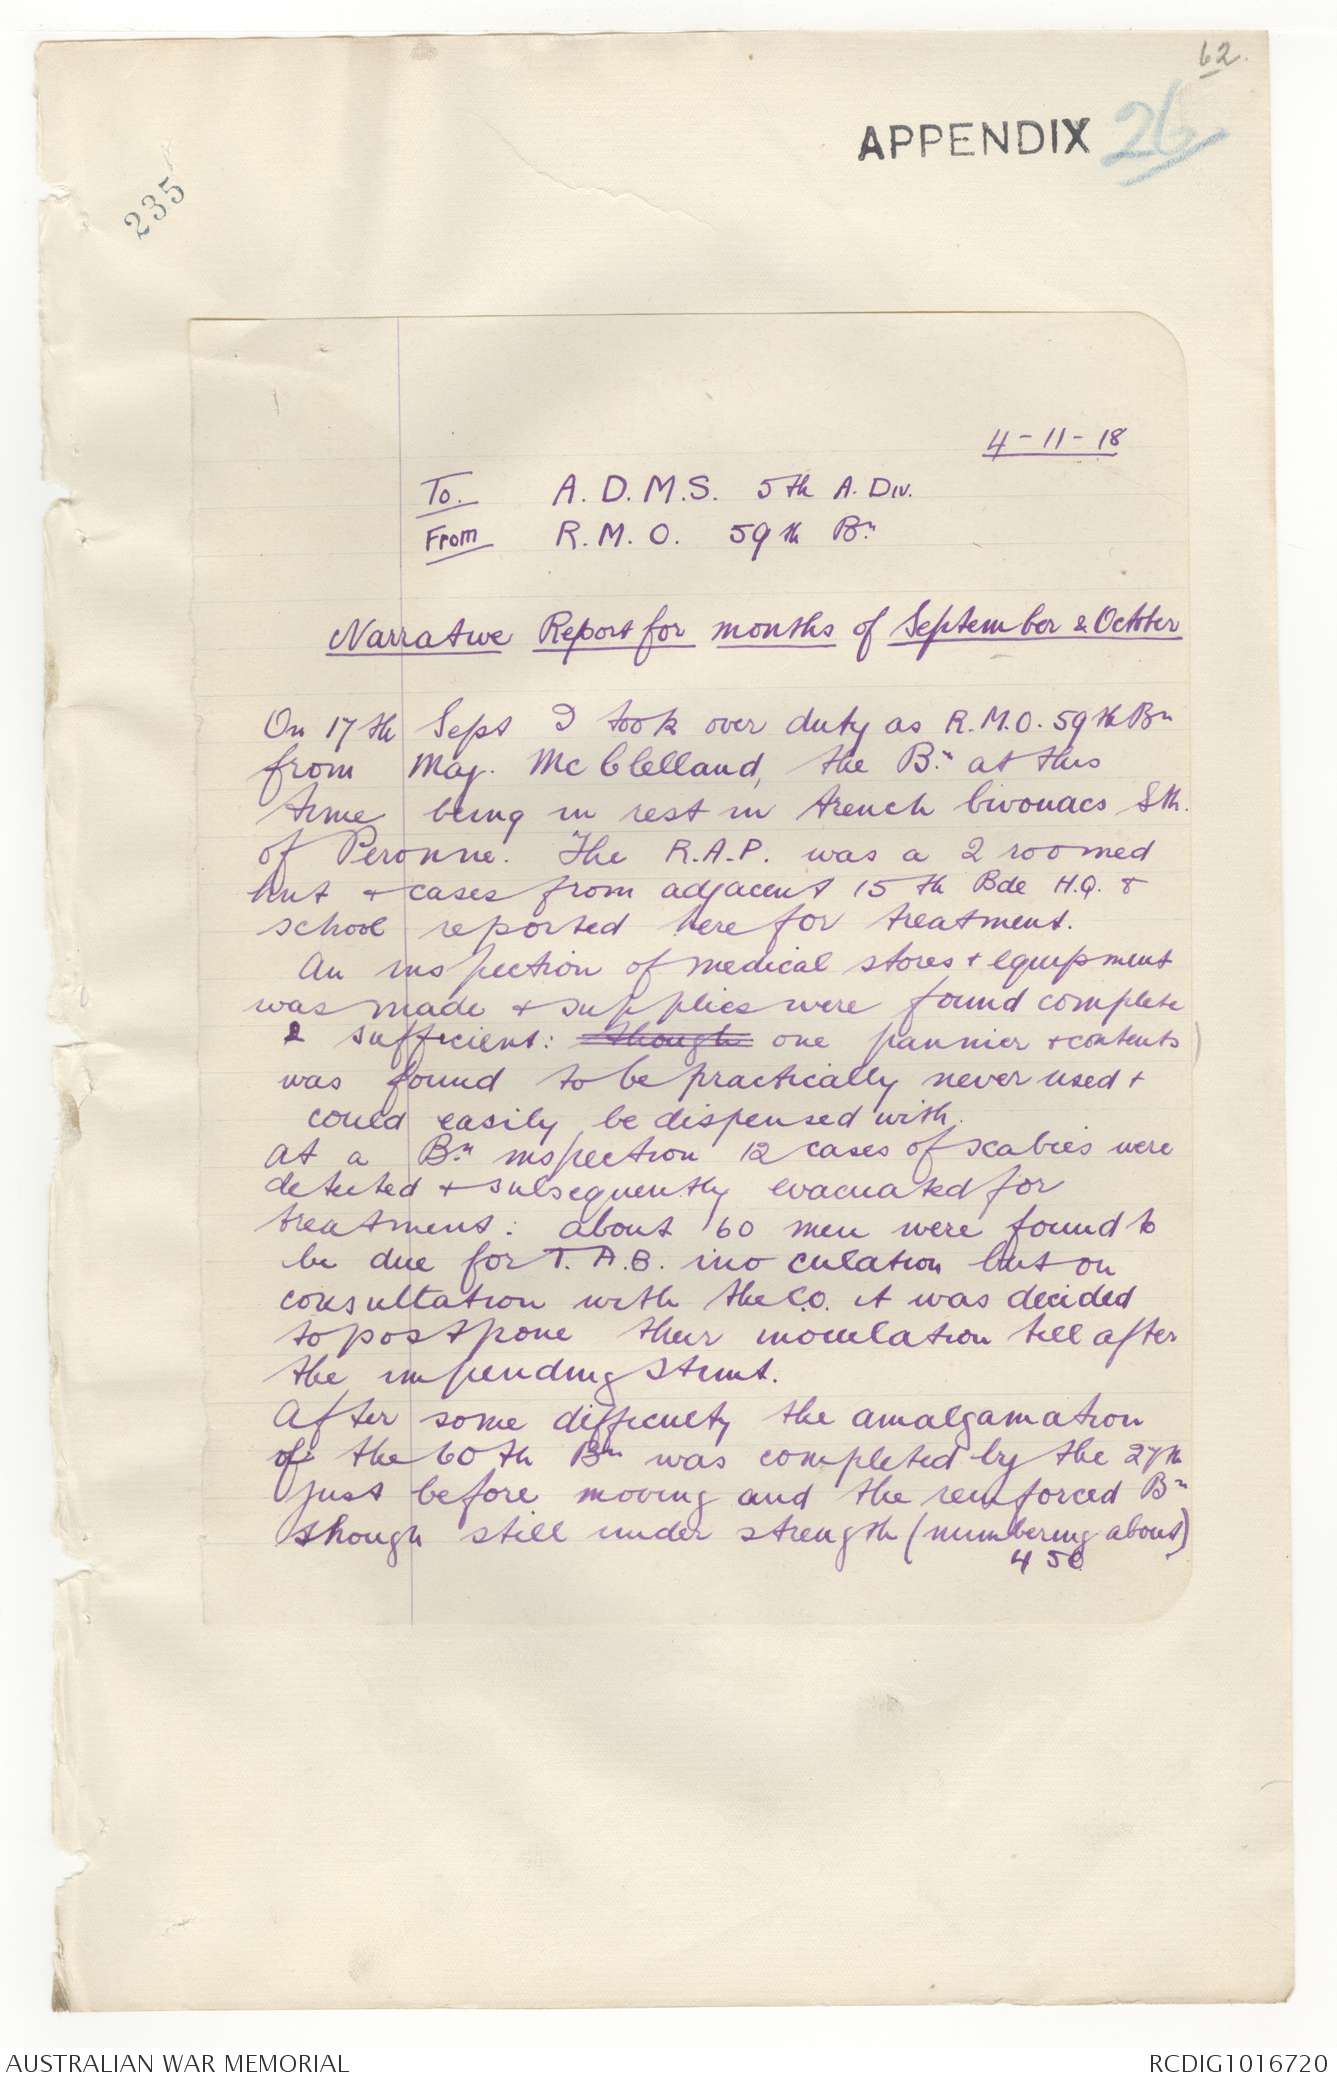 62.
APPENDIX 26
235
4-11-18
To. A.D.M.S. 5th A. Div.
From R.M.O. 59th Bn
Narrative Report for months of September & October
On 17th Sept I took over duty as R.M.O. 59th Bn
from Maj. McClelland, the Bn at this
time being in rest in trench bivouacs Sth.
of Peronne. The R.A.P. was a 2 roomed
hut + cases from adjacent 15th Bde H.Q. &
school reported here for treatment.
An inspection of medical stores + equipment
was made + supplies were found complete
& sufficient: though one pannier + contents
was found to be practically never used +
could easily be dispensed with.
At a Bn inspection 12 cases of scabies were
detected + subsequently evacuated for
treatment: about 60 men were found to
be due for T.A.B. inoculation but on
consultation with the C.O. it was decided
to postpone their inoculation till after
the impending stunt.
After some difficulty the amalgamation
of the 60th Bn was completed by the 27th
just before moving and the reinforced Bn
though still under strength (numbering about)
450
AUSTRALIAN WAR MEMORIAL
RCDIG1016720